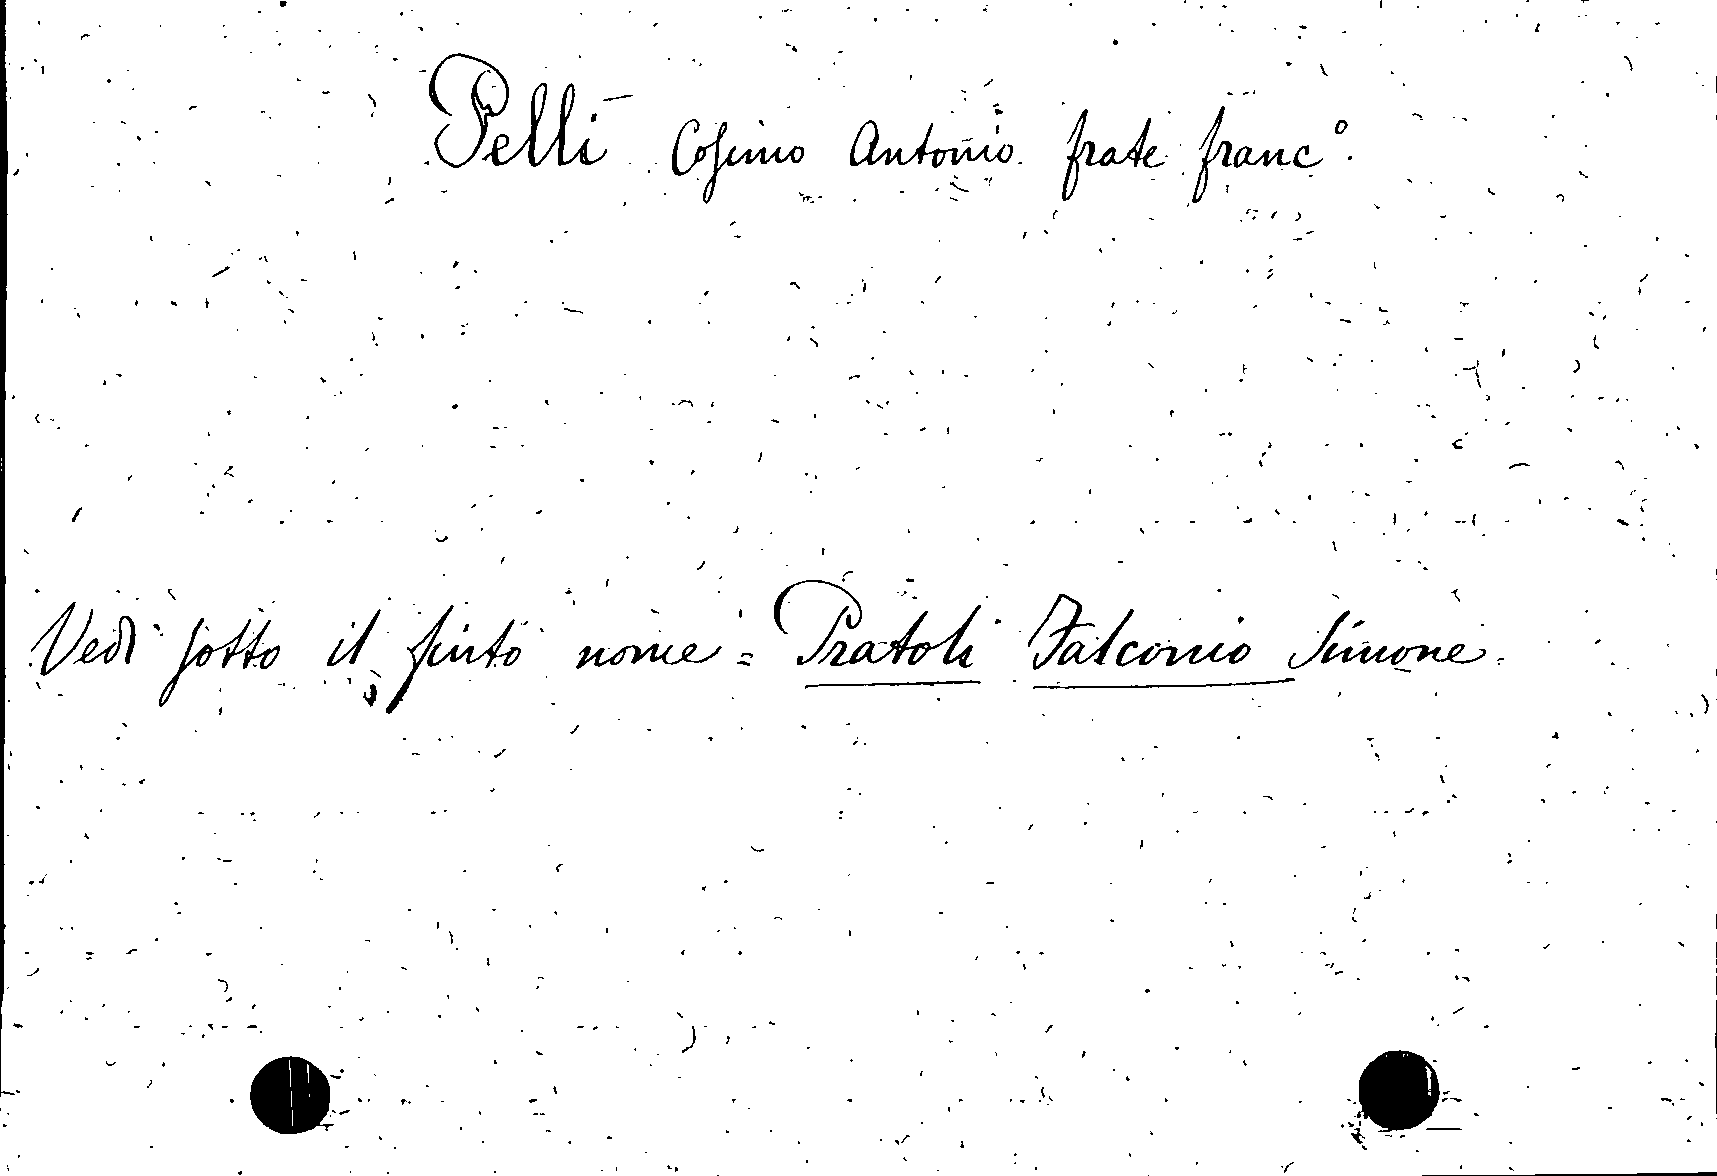 Pelli Cosimo Antonio frate franc°.
Vedi sotto il finto nome = Pratoli Falconio Simone.